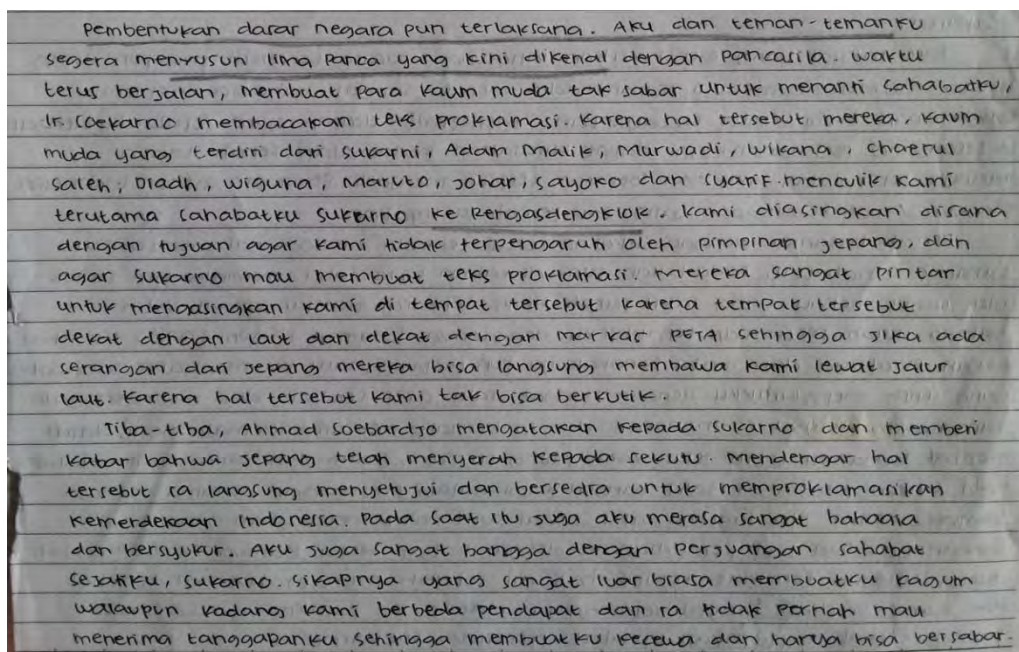 Pembentukan dasar negara pun terlaksana. Aku dan teman-temanku
segera menyusun lima panca yang kini dikenal dengan pancasila. waktu
terus berjalan, membuat para kaum muda tak sabar untuk menanti sahabatku,
Ir. Soekarno membacakan teks proklamasi. Karena hal tersebut mereka, kaum
muda yang terdiri dari sukarni, Adam Malik, Murwadi, wikana, chaerul
saleh, Diadh, wiguna, Maruto, Johar, sayoko dan syarif menculik kami
terutama sahabatku sukarno ke Rengasdengklok. Kami diasingkan disana
dengan tujuan agar kami tidak terpengaruh oleh pimpinan jepang, dan
agar sukarno mau membuat teks proklamasi. Mereka sangat pintar
untuk mengasingkan kami di tempat tersebut karena tempat tersebut
dekat dengan laut dan dekat dengan markas PETA sehingga jika ada
serangan dari jepang mereka bisa langsung membawa kami lewat jalur
laut. Karena hal tersebut kami tak bisa berkutik.
Tiba-tiba, Ahmad Soebardjo mengatakan kepada sukarno dan memberi
kabar bahwa jepang telah menyerah kepada sekutu. Mendengar hal
tersebut ia langsung menyetujui dan bersedia untuk memproklamasikan
kemerdekaan Indonesia. Pada saat itu juga aku merasa sangat bahagia
dan bersyukur. Aku juga sangat bangga dengan perjuangan sahabat
sejatiku, sukarno. sikapnya yang sangat luar biasa membuatku kagum
walaupun kadang kami berbeda pendapat dan ia tidak pernah mau
menerima tanggapanku sehingga membuatku kecewa dan hanya bisa bersabar.